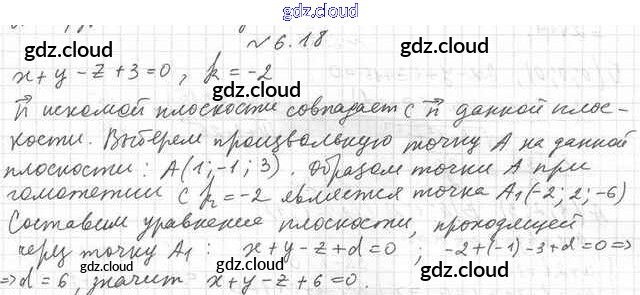 gdz.cloud
№6.18
x+y-z+3=0, k=-2
n⃗ искомой плоскости совпадает с n⃗ данной плос-
кости. Выберем произвольную точку A на данной
плоскости: A(1;-1;3). Образом точки A при
гомотетии с k=-2 является точка A₁(-2; 2; -6)
Составим уравнение плоскости, проходящей
через точку A₁: x+y-z+d=0; -2+(-1)-3+d=0=>
=>d=6, значит x+y-z+6=0.
gdz.cloud
gdz.cloud
gdz.cloud
gdz.cloud
gdz.cloud
gdz.cloud
gdz.cloud
gdz.cloud
gdz.cloud
gdz.cloud